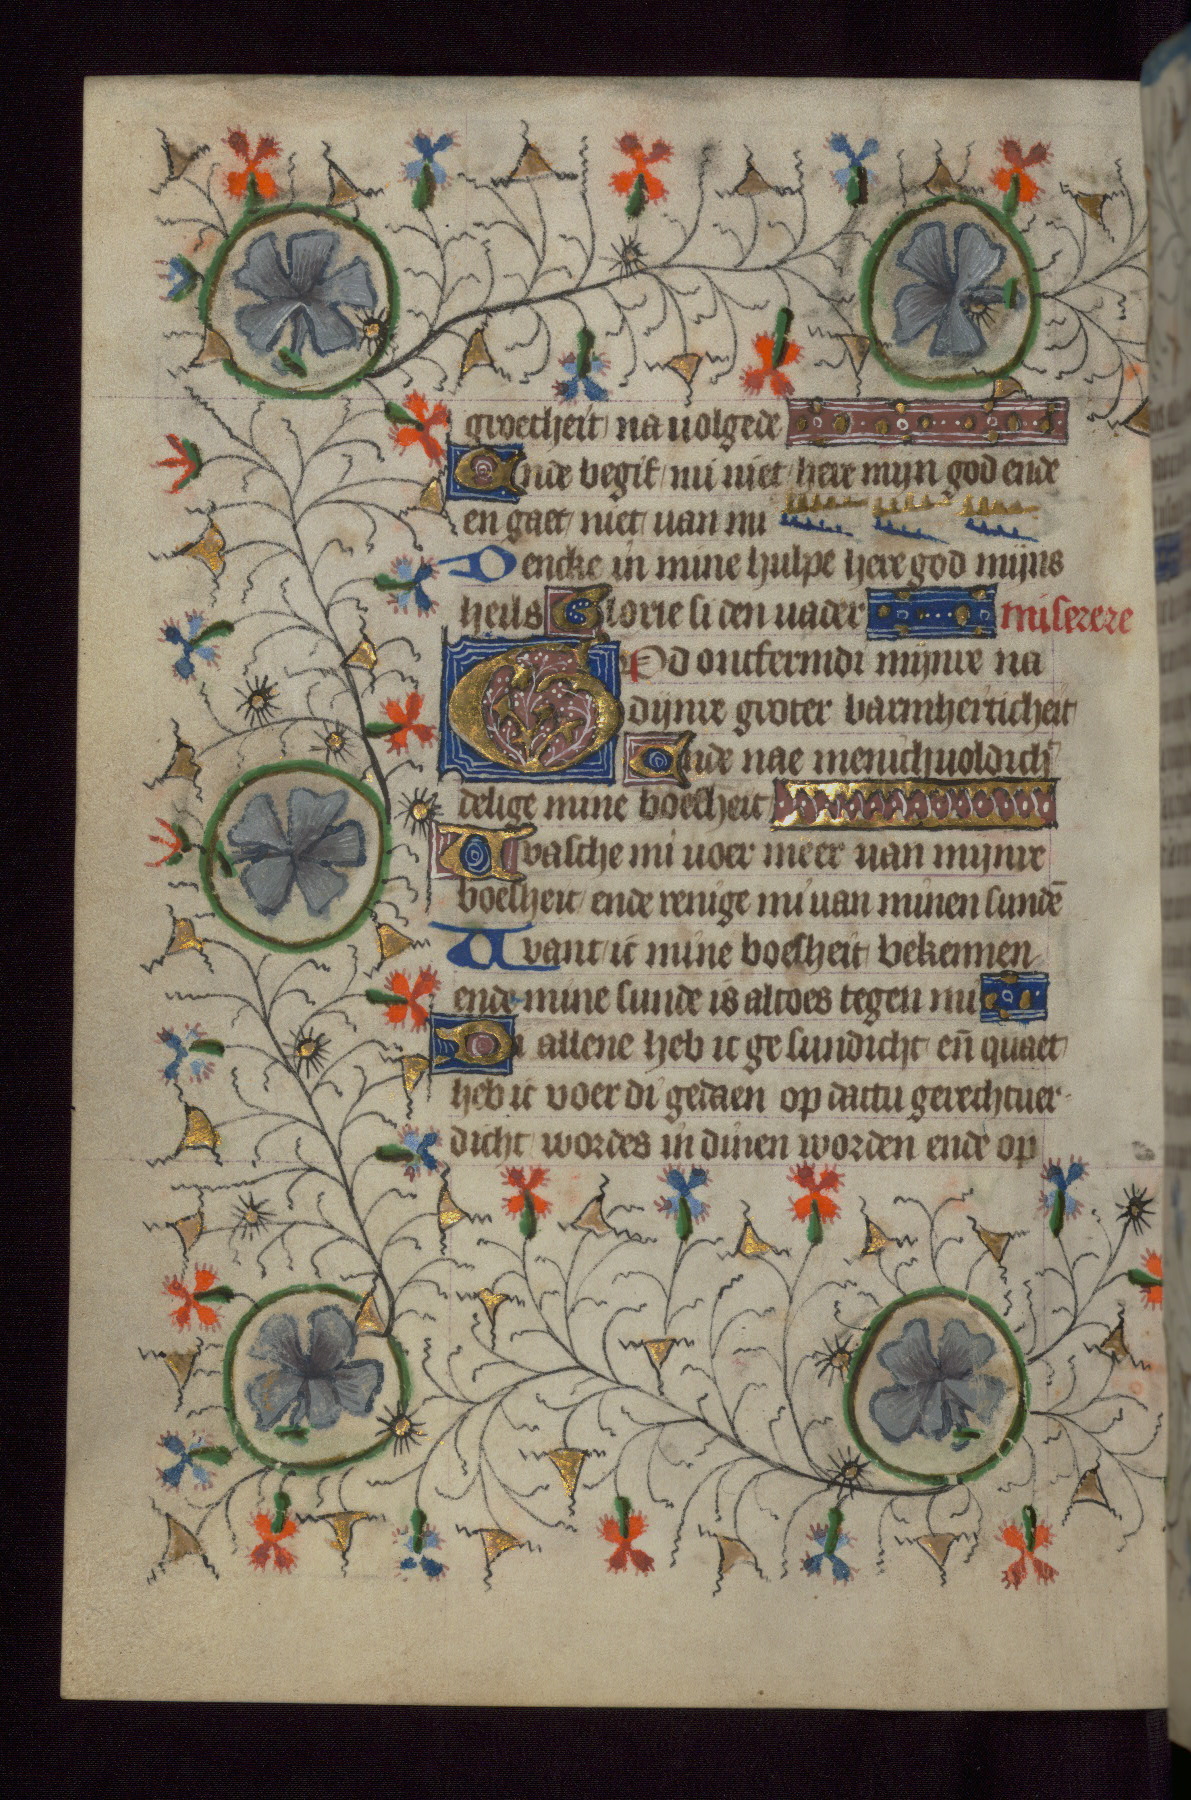 groetheit na uolgede
Ende begif mi niet here mijn god ende
en gaet niet uan mi
Dencke in mine hulpe here god mijns
heils Glorie si den uader miserere
God ontfermdi mijnre na
dijnre groter barmherticheit
Ende nae menichuoldich
delige mine boesheit
Wasche mi uoer meer uan mijnre
boesheit ende renige mi uan minen sundē
Want ic mine boesheit bekennen
ende mine sunde is altoes tegen mi
Di allene heb ic ge sundicht en̄ quaet
heb ic voer di gedaen op dattu gerechtuer-
dicht wordes in dinen worden ende op